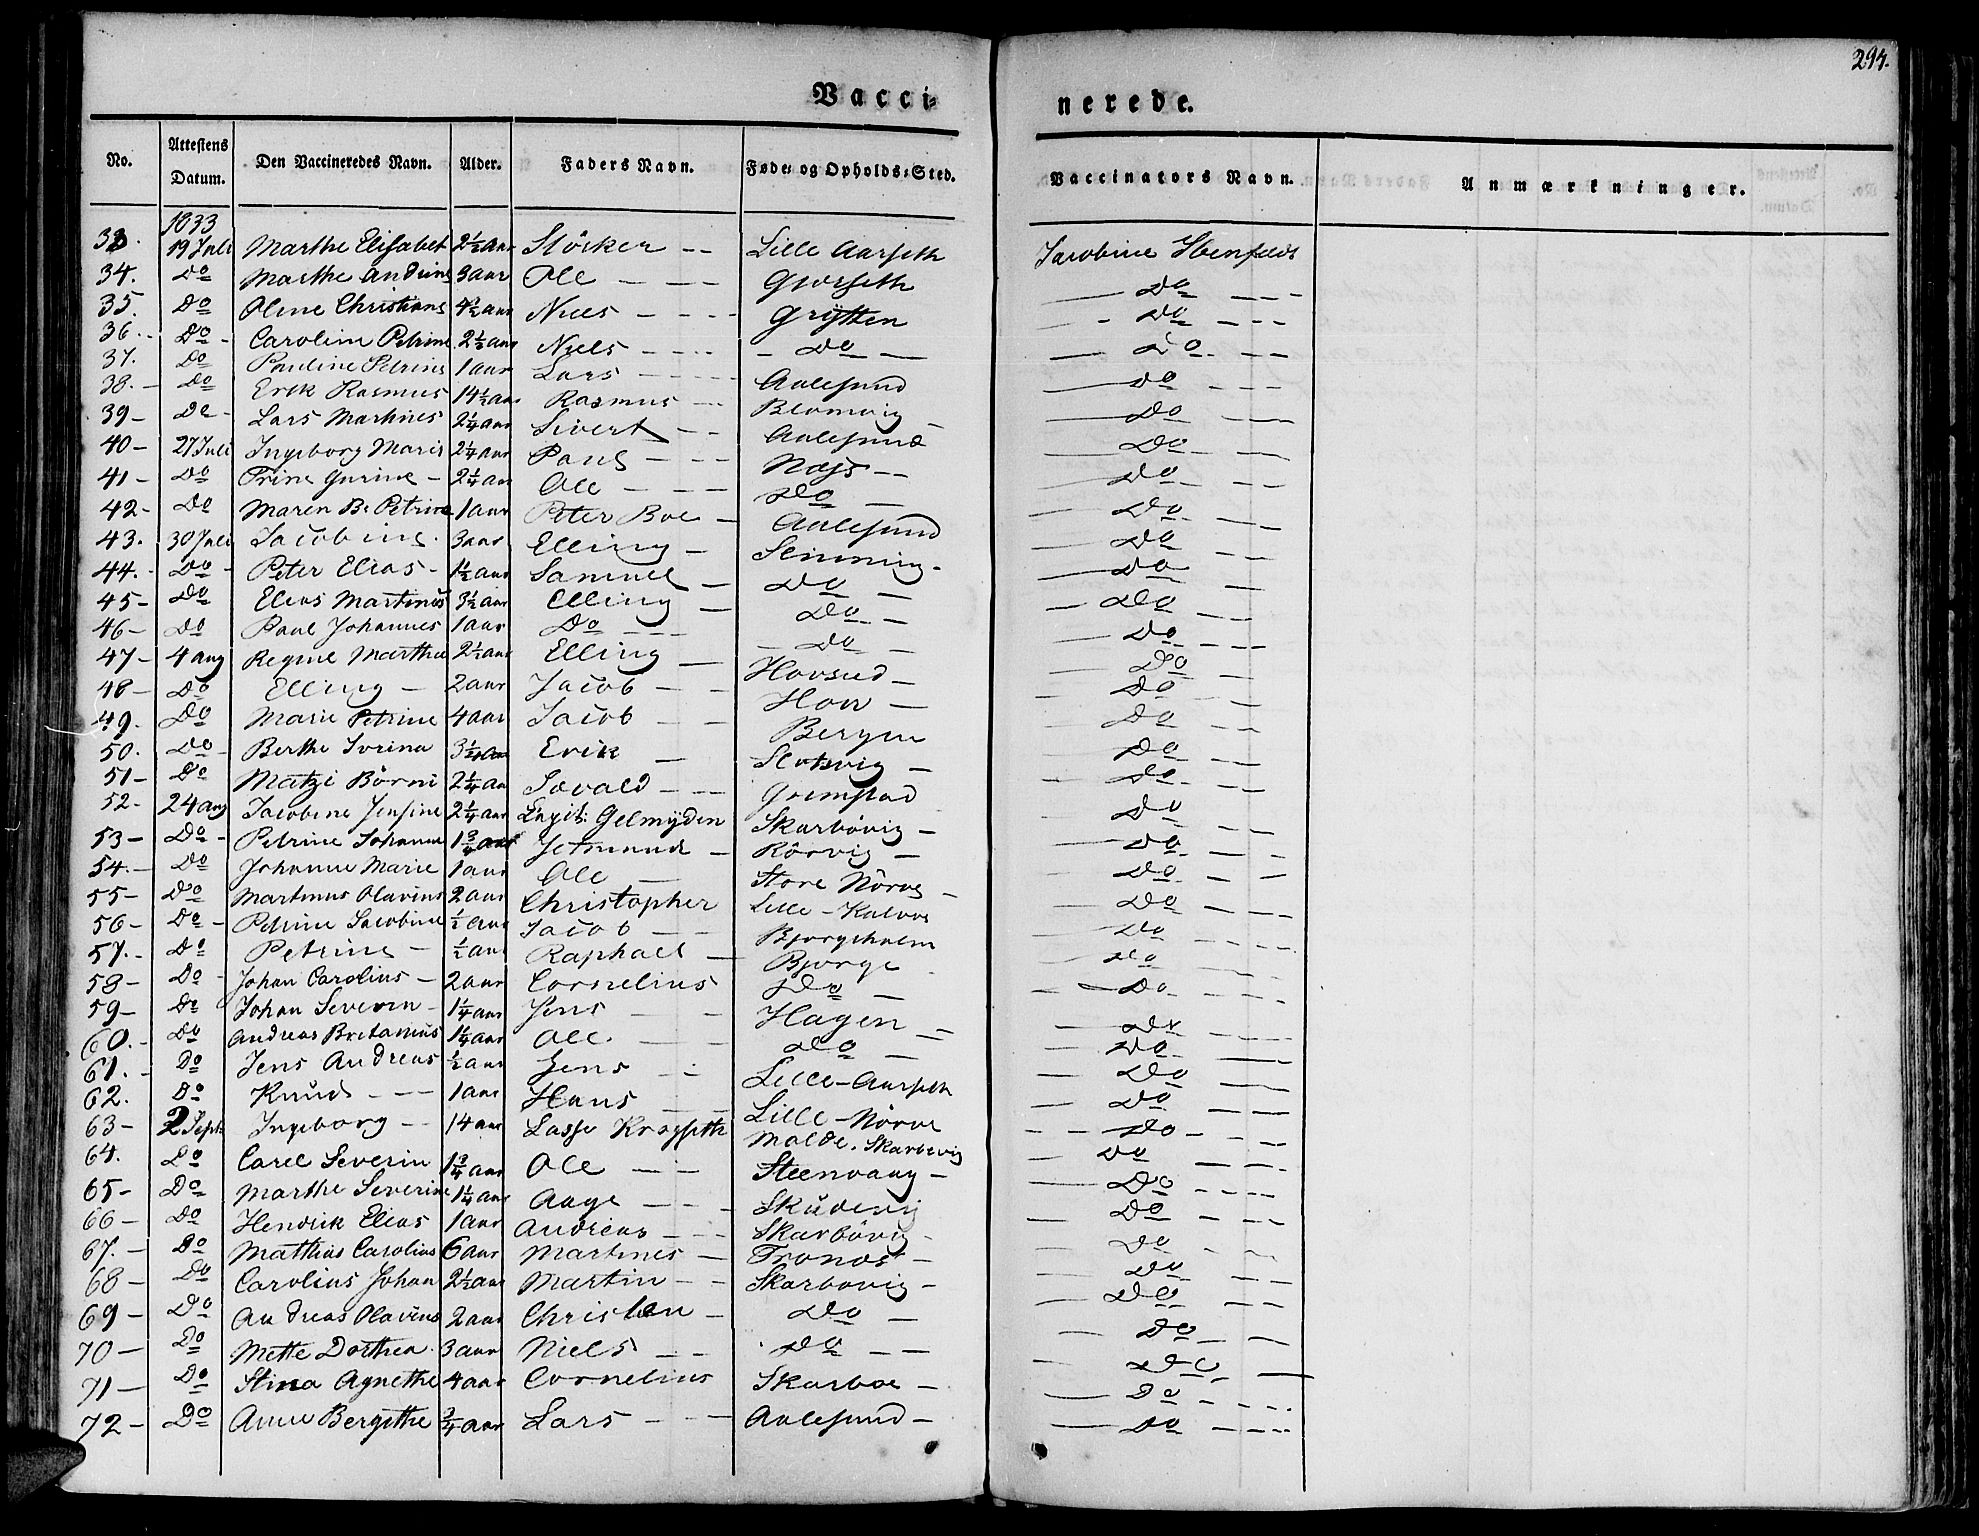 294.
Vacci-
nerede.
No. Attestens Datum. Den Vaccineredes Navn. Alder. Faders Navn. Føde- og Opholds-Sted. Vaccinators Navn. Anmærkninger.
1833
33. 19 Juli Marthe Elisabet 2½ aar Störker -- Lille Aarseth Jacobine
34. Do Marthe Andrine 3 aar Ole --- Gjørseth --- Do ---
35. Do Oline Christiane 4½ aar Niels ---- Grytten - Do ---
36. Do - Caroline Petrine 2½ aar Niels ---- - Do -- --- Do. --
37. Do Pauline Petrine 1 aar Lars ---- Aalesund --- Do ---
38. - Do Erik Rasmus 14½ aar Rasmus --- Blomvig --- Do ---
39 - Do - Lars Martines 2¼ aar Sivert -- Aalesund --- Do ---
40 - 27 Juli Ingeborg Marie 2¼ aar Paul --- --- Do ---
41 - Do Trine Gurine - 2¼ aar Ole --- Do -- --- Do ---
42 - Do Maren B. Petrine 1 aar Peter Boe - Aalesund --- Do ---
43. 30 Juli Jacobine. 3 aar Elling - Slinning - --- Do ---
44. - Do - Peter Elias - 1½ aar Samuel - Do - --- Do ---
45 - Do Elias Martinus 3½ aar Elling - Do - --- Do ---
46 - Do Paul Johannes 1 aar Do --- - Do - --- Do ---
47 - 4 aug Regine Marthea 2½ aar Elling - - --- Do ---
48 - Do Elling - 2 aar Jacob -- Hov - --- Do ---
49. Do Marie Petrine 4 aar Jacob -- Bergen --- Do ---
50. Do - Berthe Serina 3¼ aar Erik - - --- Do ---
51 - Do Matzi Börni 2¼ aar Sevald --- Grimstad - Do ---
52 - 24 aug Jacobine Jensine 2¼ aar Gelmyden Skarbövig - --- Do ---
53 - Do - Petrine Johanne 1¾ aar Jetmund - Rörvig - --- Do ---
54. - Do Johanne Marie 1 aar Ole -- Store Nörve - --- Do ---
55 - Do Martinus Olavius 2 aar Christopher Lille - Kalvøe --- Do ---
56 - Do - Petrine Jacobine ½ aar Jacob -- Bjørgeholm --- Do ---
57. - Do Petrine - ½ aar Raphael - Bjørge - --- Do ---
58 - Do - Johan Carolius - 2 aar Cornelius Do - --- Do ---
59 - Do Johan Severin - 1¼ aar Jens -- Hagen - --- Do ---
60. - Do Andreas Bretanius 1¼ aar Ole. -- Do - --- Do ---
61. - Do Jens Andreas ½ aar Jens -- Lille - Aarseth --- Do ---
62. Do Knud --- 1 aar Hans -- Lille - Nörve --- Do ---
63 - 2 Sept Ingeborg -- 14 aar Lasse Molde. Skarbövig --- Do ---
64. Do Carel Severin 1¾ aar Ole --- Steenvaag - --- Do ---
65 - Do Marthe Severine 1¼ aar Aage --- --- Do ---
66 - Do Hendrik Elias 1 aar Andreas --- Skarbövig - --- Do ---
67. - Do Matthias Carolius 6 aar Martines - - --- Do ---
68 - Do Carolius Johan 2½ aar Martin -- Skarbövig - --- Do ---
69 - Do Andreas Olavius 2 aar Christen - Do - --- Do ---
70 - Do Mette Dorthea. 3 aar Niels -- Do -- --- Do ---
71 - Do Stina Agnethe 4 aar Cornelius Skarbøe - --- Do ---
72 - Do Anne Bergithe ¾ aar Lars ---- Aalesund - --- Do ---